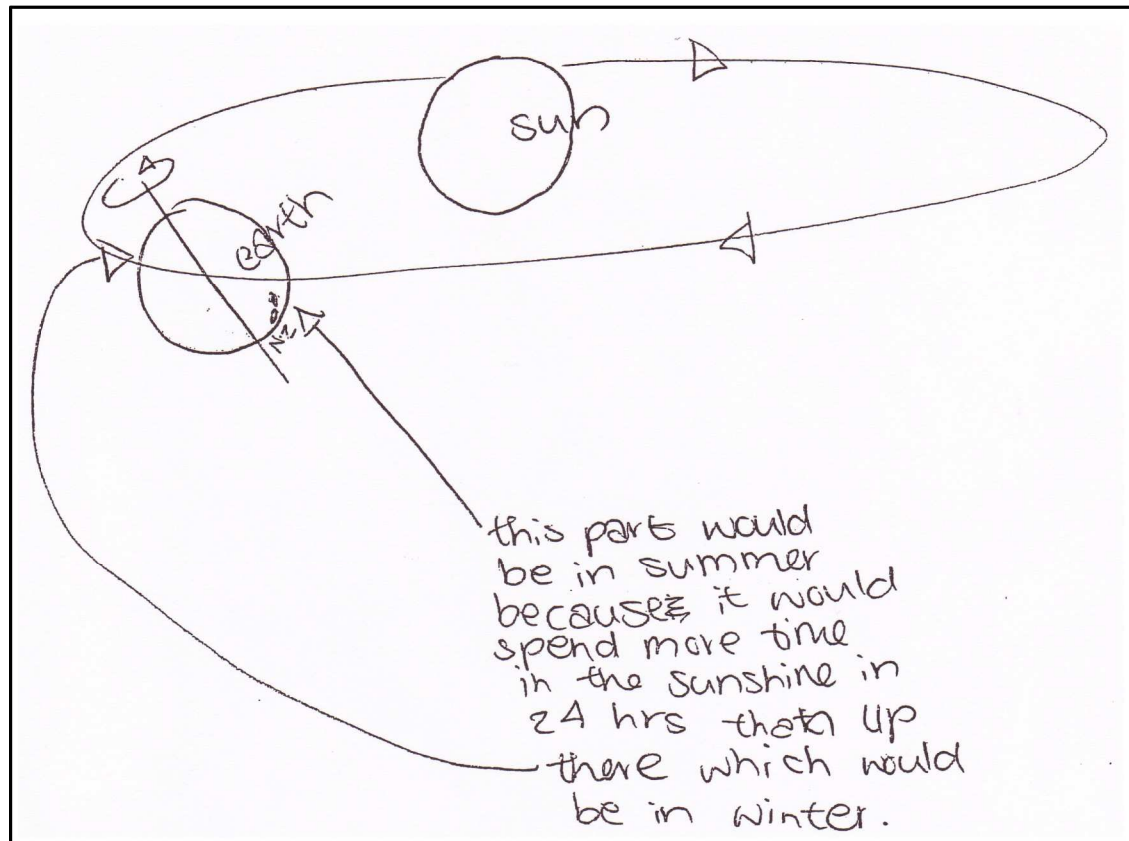 sun
earth
NZ
this part would
be in summer
because it would
spend more time
in the sunshine in
24 hrs than up
there which would
be in winter.